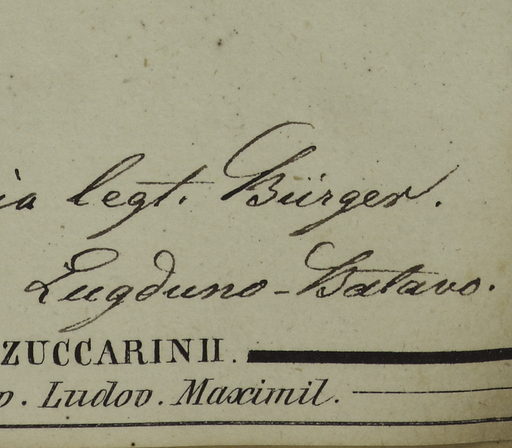 ia legt. Bürger.
Lugduno-Batavo.
ZUCCARINII.
p. Ludov. Maximil.